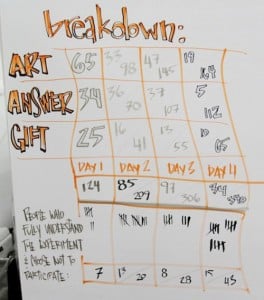 breakdown:
ART 65 33 47 19
98 145 164
ANSWER 34 36 37 5
70 107 112
GIFT 25 16 13 10
41 55 65
DAY 1 DAY 2 DAY 3 DAY 4
124 85 97 34
209 306 340
PEOPLE WHO
FULLY UNDERSTAND
THE EXPERIMENT
& CHOOSE NOT TO
PARTICIPATE: 7 13 20 8 28 15